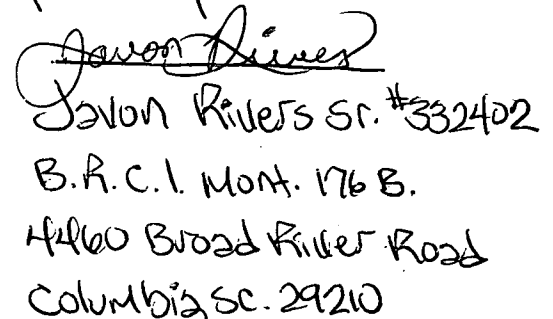 Javon Rivers
Javon Rivers Sr. #332402
B.R.C.I. Mont. 176 B.
4460 Broad River Road
Columbia, SC. 29210